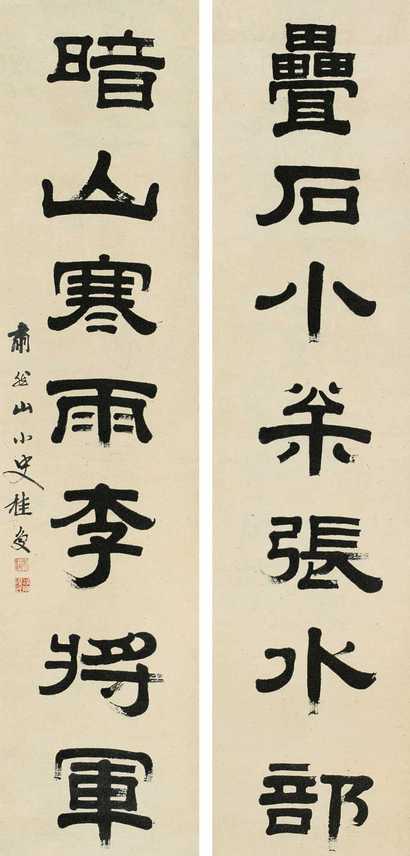 疊石小枀張水部
暗山寒雨李將軍
肅然山小史桂馥